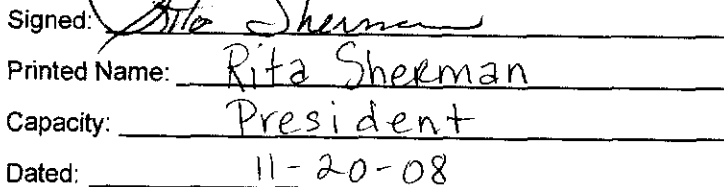 Signed: Rita Sherman
Printed Name: Rita Sherman
Capacity: President
Dated: 11-20-08